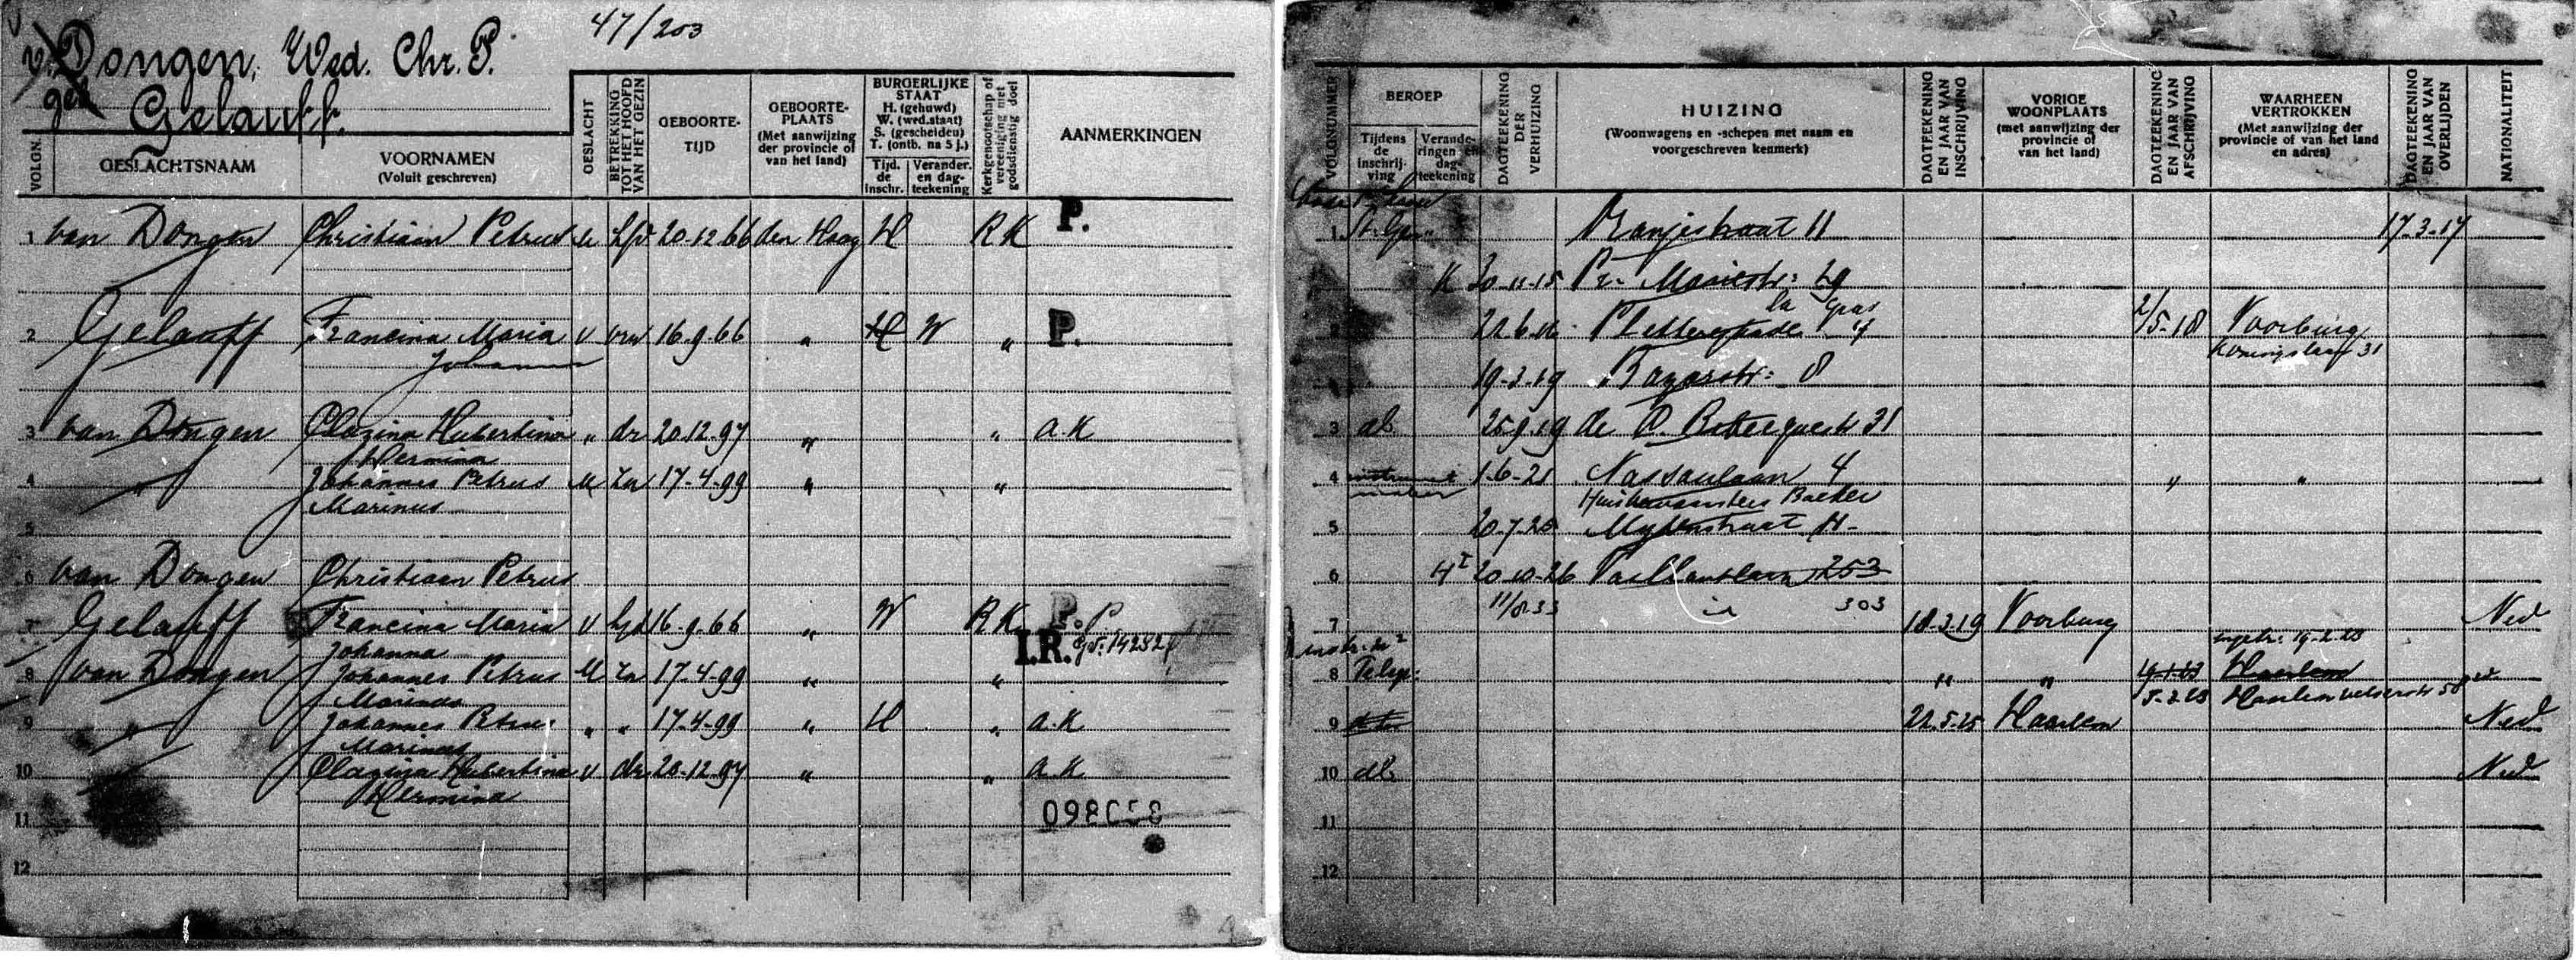 47/203
v. Dongen, Wed. Chr. P.
geb
Gelauff.
VOLGN.
GESLACHTSNAAM
VOORNAMEN
(Voluit geschreven)
GESLACHT
BETREKKING
TOT HET HOOFD
VAN HET GEZIN
GEBOORTE-
TIJD
GEBOORTE-
PLAATS
(Met aanwijzing
der provincie of
van het land)
BURGERLIJKE
STAAT
H. (gehuwd)
W. (wed.staat)
S. (gescheiden)
T. (ontb. na 5 j.)
Tijd.
de
inschr.
Verander.
en dag-
teekening
Kerkgenootschap of
vereeniging met
godsdienstig doel
AANMERKINGEN
1 van Dongen Christiaan Petrus M hfd 20.12.66 den Haag H RK P.
2 Gelauff Francina Maria V vrw 16.9.66 " H W " P.
Johanna
3 van Dongen Clazina Hubertina " dr 20.12.97 " " a.K
Hermina
4 " Johannes Petrus M zn 17-4-99 " "
Marinus
5
6 van Dongen Christiaan Petrus
7 Gelauff Francina Maria V hfd 16-9-66 " W RK P.
Johanna I.R.
8 van Dongen Johannes Petrus M zn 17-4-99 " "
Marinus
9 " Johannes Petrus " " 17-4-99 " H " a.K
Marinus
10 " Clazina Hubertina V dr 20-12-97 " " a.K
Hermina
11 098008
12
VOLGNUMMER
BEROEP
Tijdens
de
inschrij-
ving
Verande-
ringen en
dag-
teekening
DAGTEEKENING
DER
VERHUIZING
HUIZING
(Woonwagens en -schepen met naam en
voorgeschreven kenmerk)
DAGTEEKENING
EN JAAR VAN
INSCHRIJVING
VORIGE
WOONPLAATS
(met aanwijzing der
provincie of
van het land)
DAGTEEKENING
EN JAAR VAN
AFSCHRIJVING
WAARHEEN
VERTROKKEN
(Met aanwijzing der
provincie of van het land
en adres)
DAGTEEKENING
EN JAAR VAN
OVERLIJDEN
NATIONALITEIT
1 Oranjestraat 11 17-3-17
K 30-11-15 Pr. Mariestr: 29
2 22.6.16 Pletterijkade 2/5-18 Voorburg
Koningslaan 31
19-3-19 Bazarstr: 8
3 db 25.9.19 de 31
4 instrument 1-6-21 Nassaulaan 4 " "
maker Huisbewaarster Backer
5 20-7-25 Mijtenstraat 11
6 20-10-26 Vaillantlaan 253
11/8 33 303
7 18-3-19 Voorburg Ned
ingetr. 19-2-23
8 " " 19-1-23 Haarlem
5-2-23 Haarlem
9 22.5-25 Haarlem Ned
10 db Ned
11
12